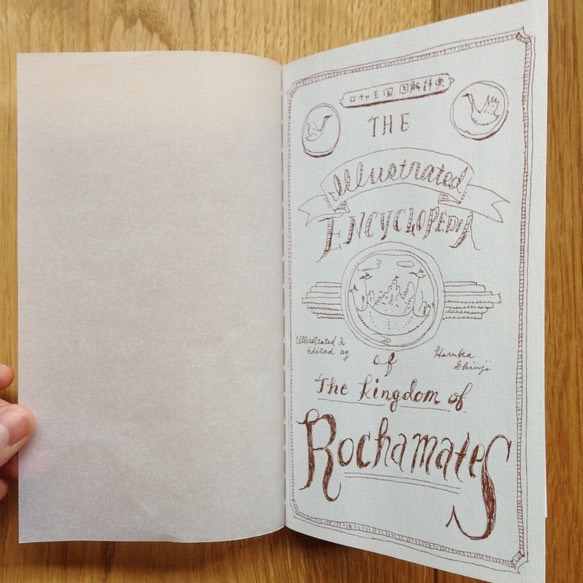 ロチャモ国 図解
THE
Illustrated
ENCYCLOPEDIA
Illustrated &
Edited by
Haruka
Shinji
of
The kingdom of
Rochamates